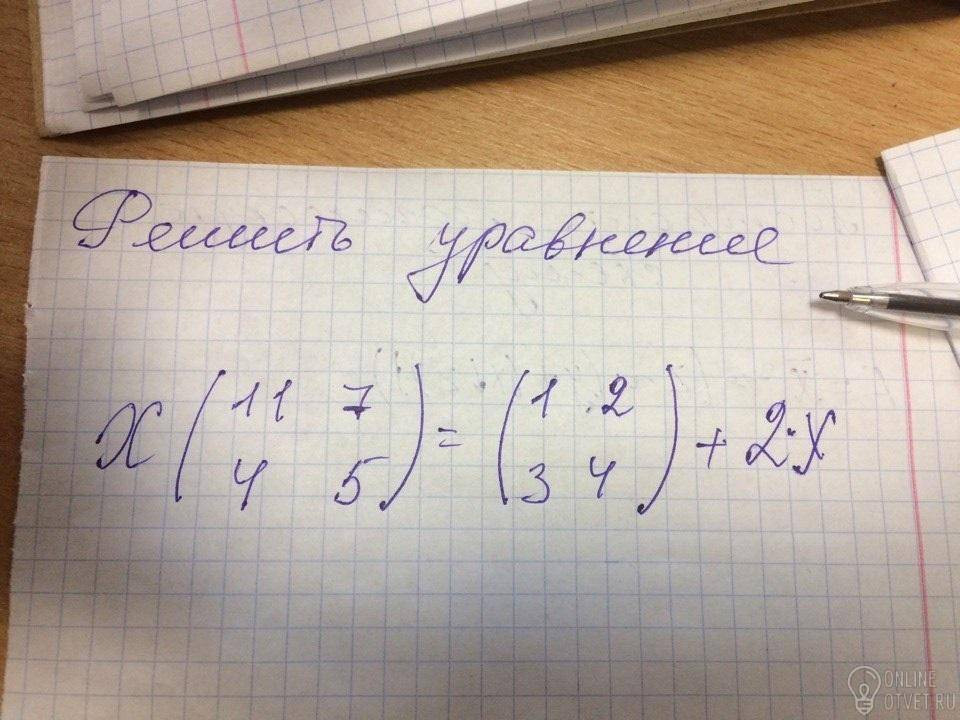 Решить уравнение
X ( 11 7 ) = ( 1 2 ) + 2·X
( 4 5 ) ( 3 4 )
ONLINE
OTVET.RU